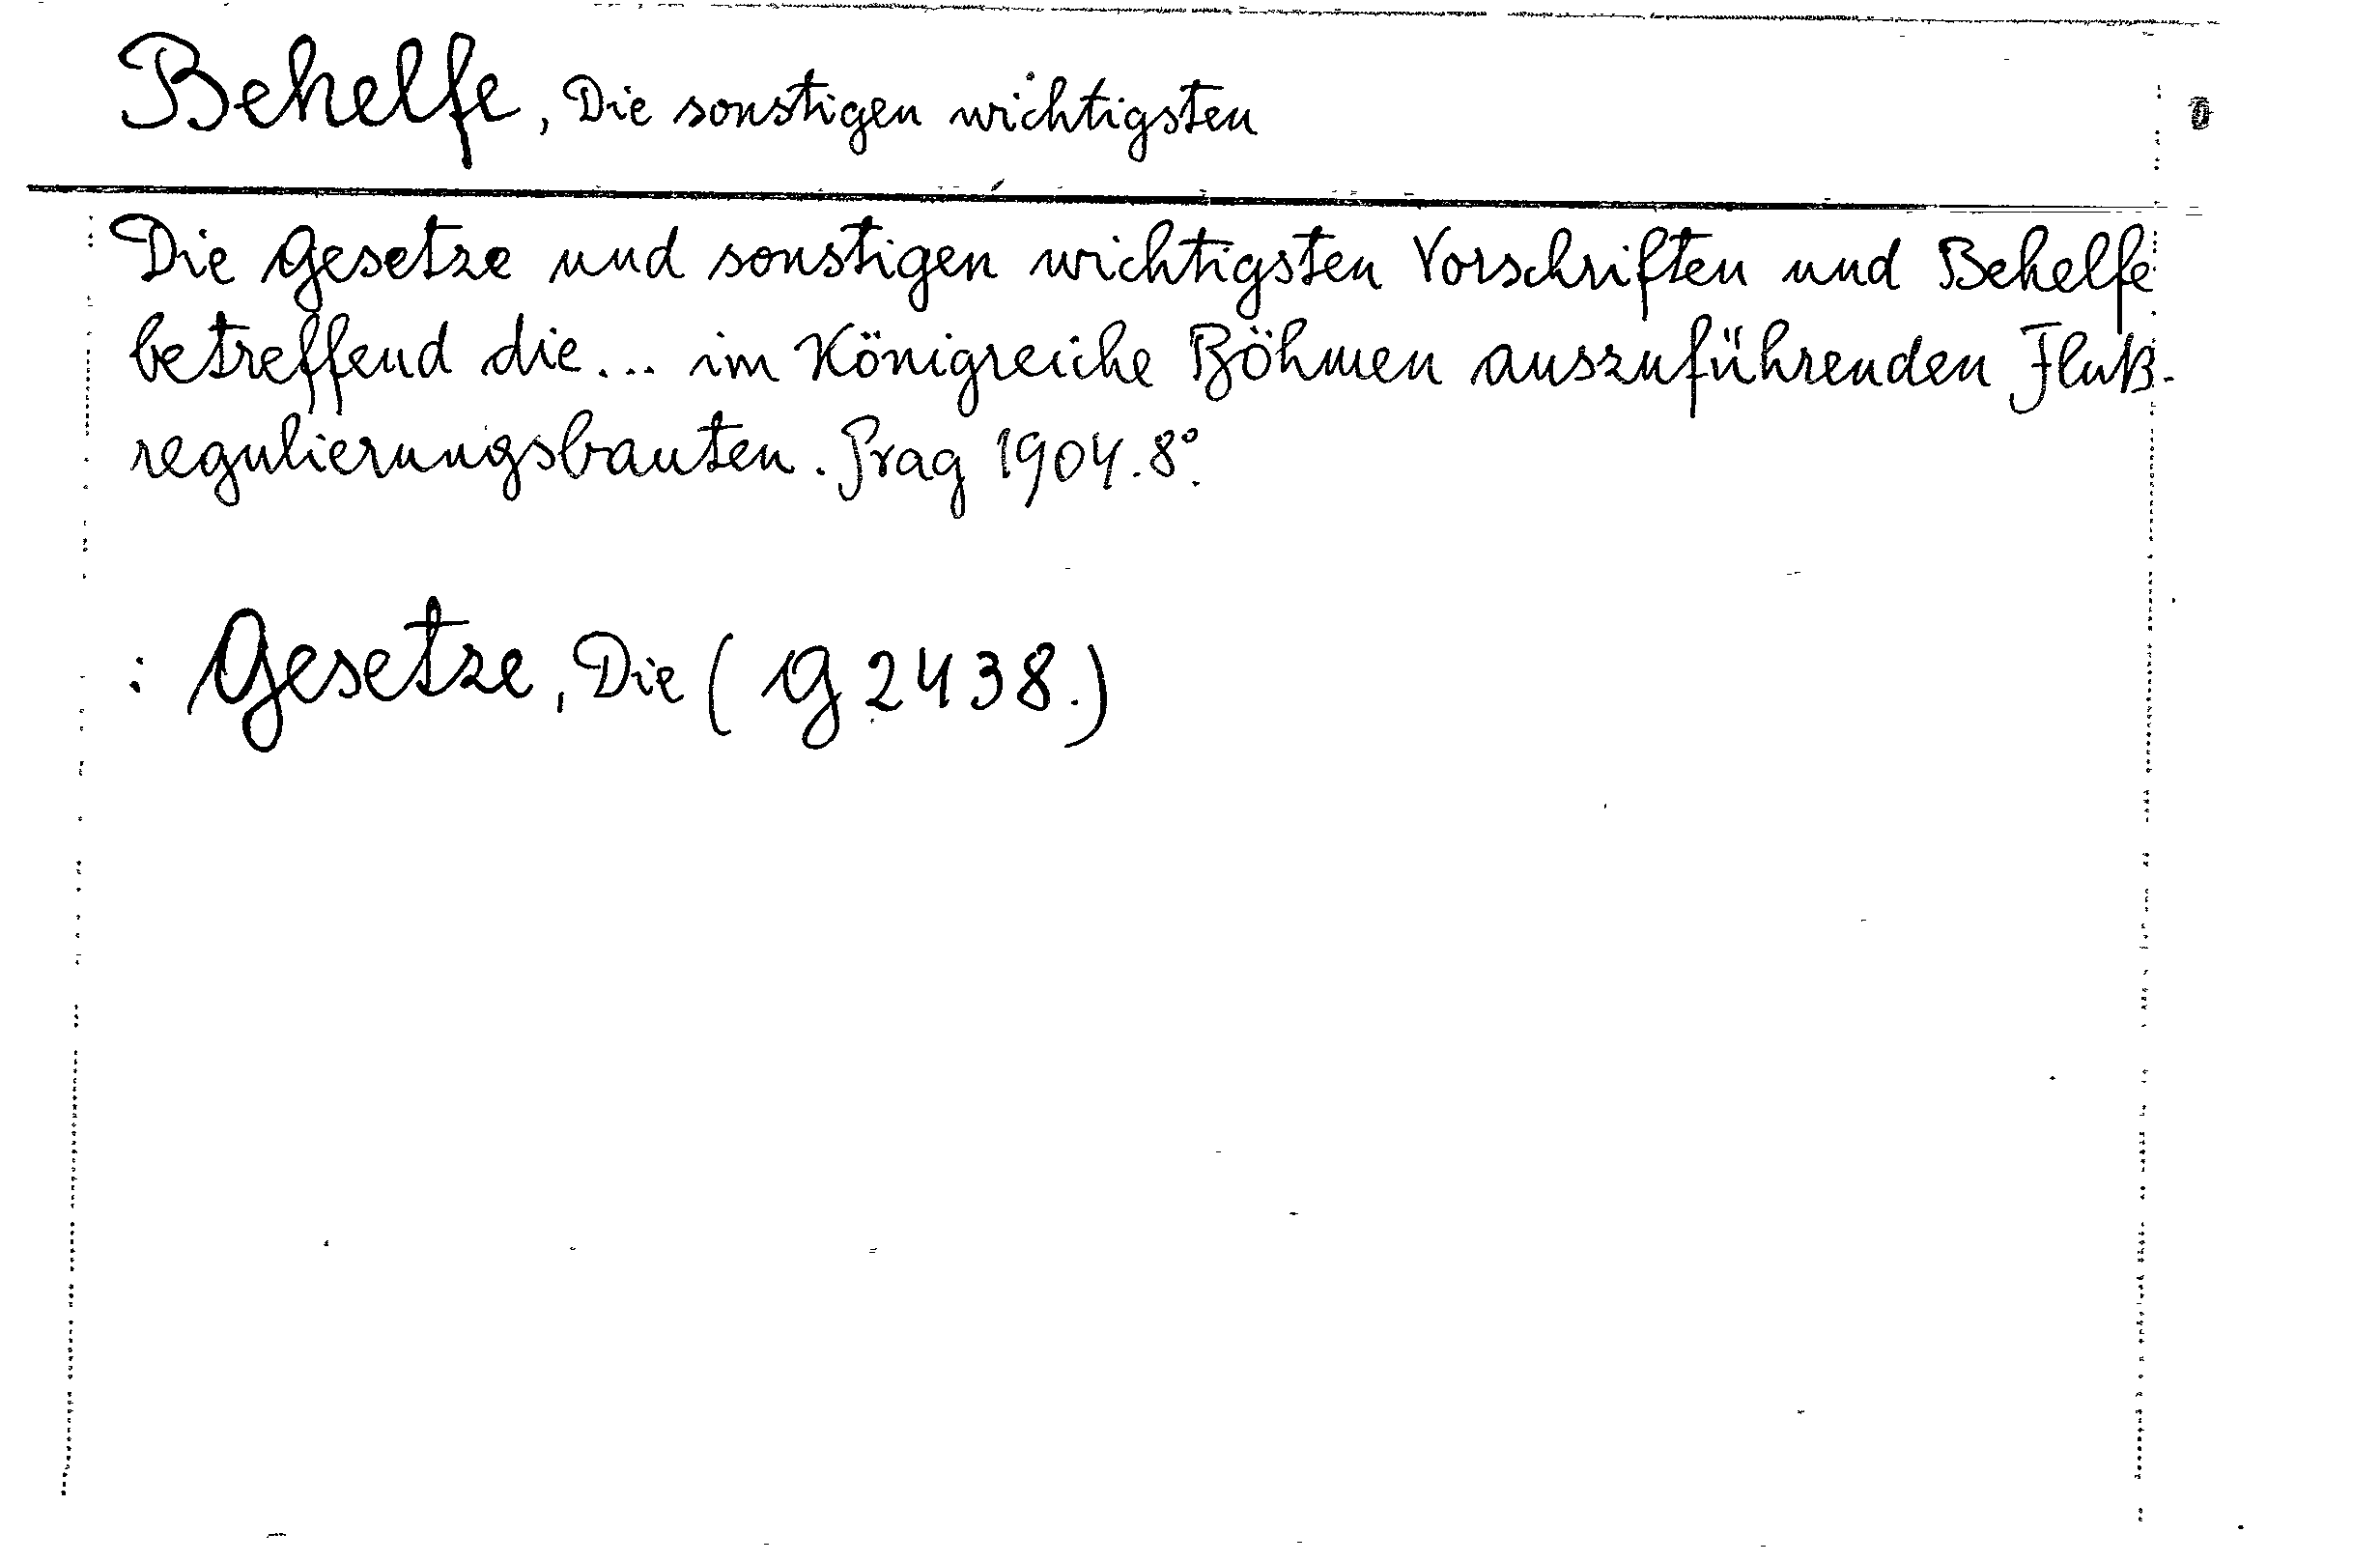 Behelfe, Die sonstigen wichtigsten
Die Gesetze und sonstigen wichtigsten Vorschriften und Behelfe
betreffend die... im Königreiche Böhmen auszuführenden Fluß-
regulierungsbauten. Prag 1904. 8°.
: Gesetze, Die (G 2438.)